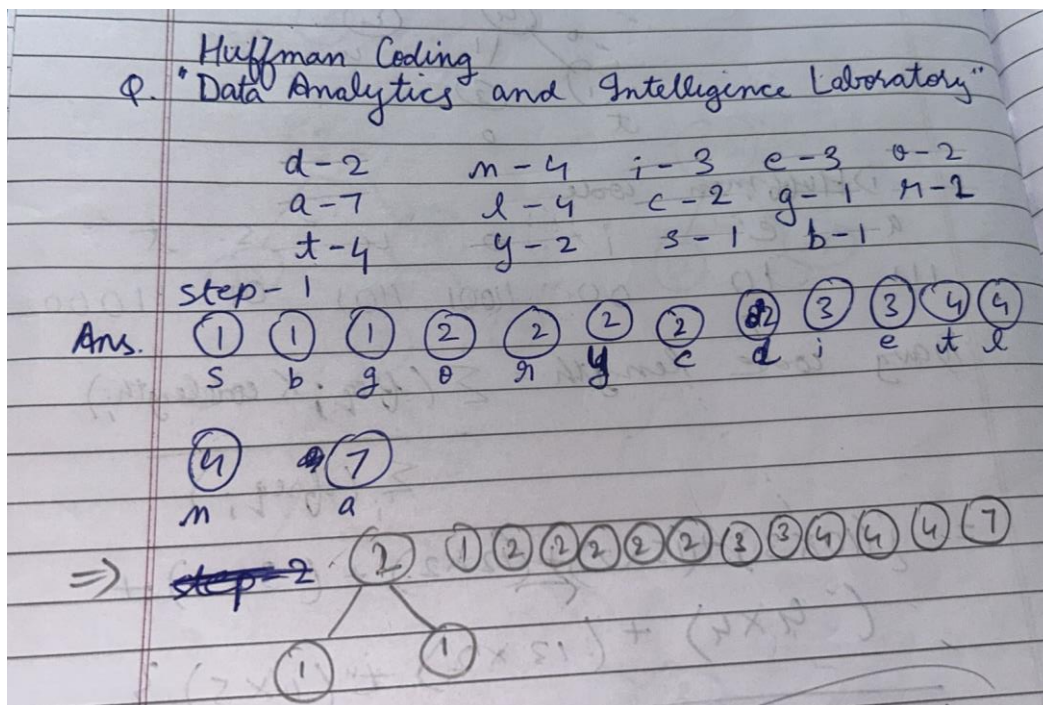 Huffman Coding
Q. "Data Analytics and Intelligence Laboratory"
d-2 n-4 i-3 e-3 o-2
a-7 l-4 c-2 g-1 r-2
t-4 y-2 s-1 b-1
step-1
Ans. 1 1 1 2 2 2 2 2 3 3 4 4
s b g o r y c d i e t l
4 7
n a
⇒ 2 1 2 2 2 2 2 3 3 4 4 4 7
1 1